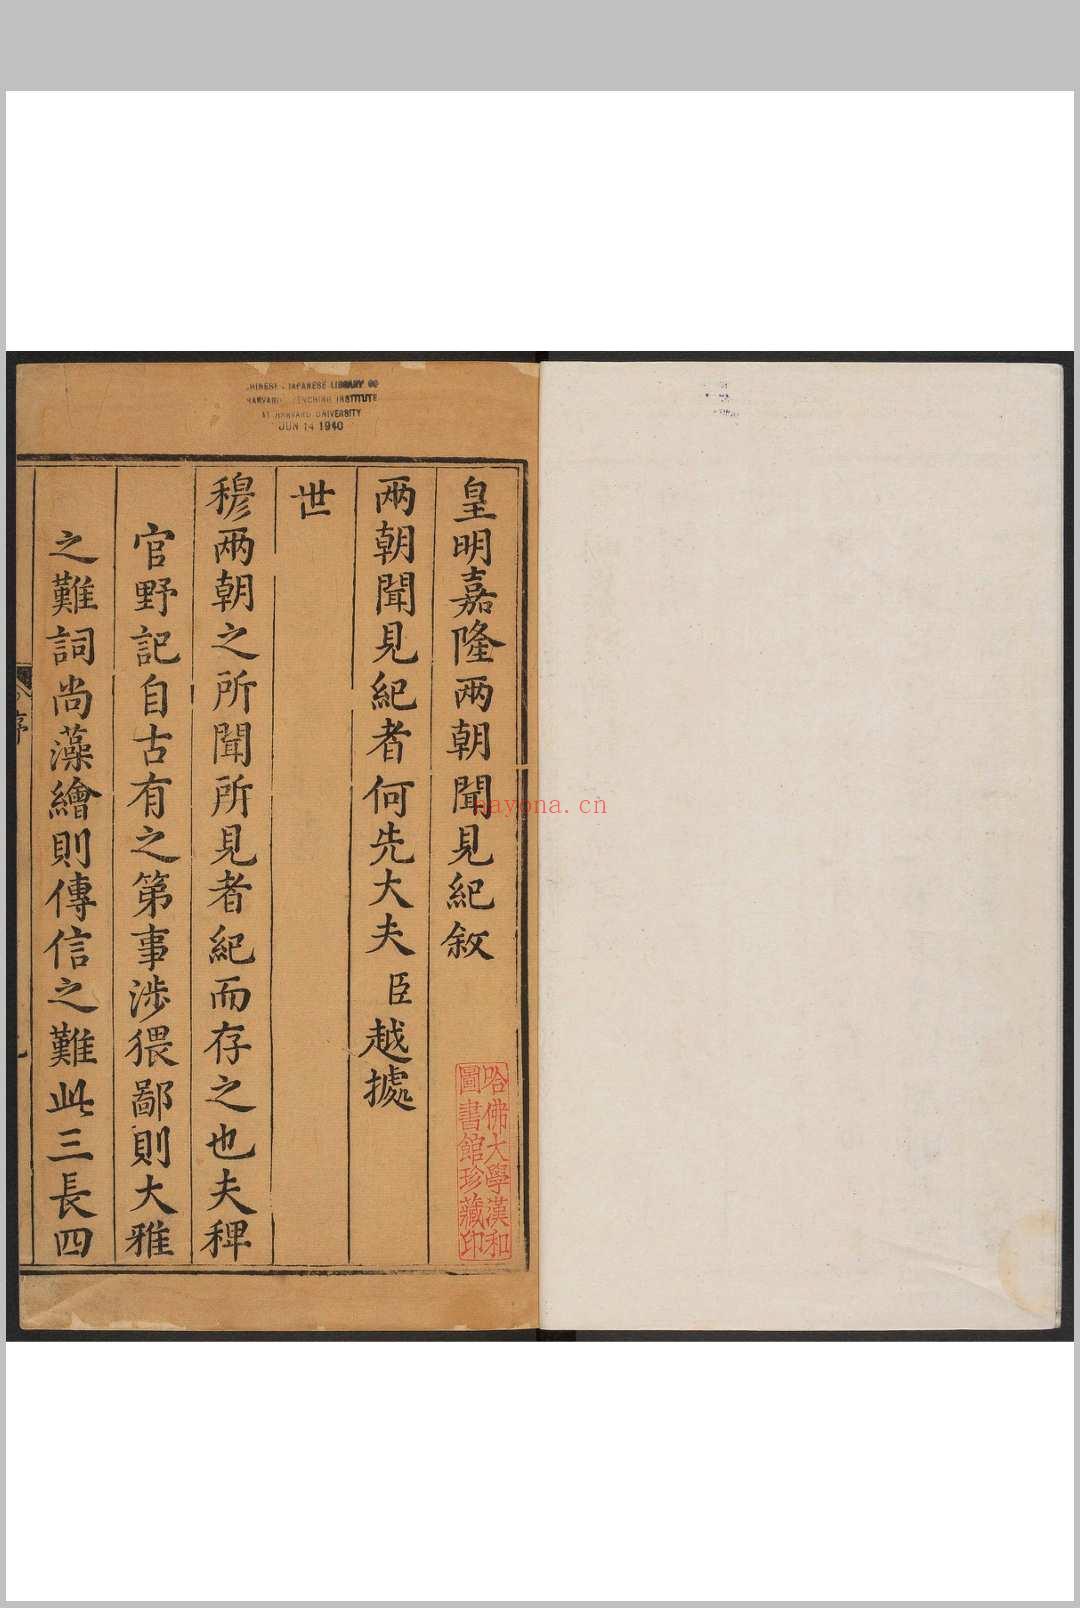 皇明嘉隆兩朝聞見紀敘
兩朝聞見紀者何先大夫臣越據
世
穆兩朝之所聞所見者紀而存之也夫稗
官野記自古有之第事涉猥鄙則大雅
之難詞尚藻繪則傳信之難此三長四
序
哈佛大學漢和
圖書館珍藏印
CHINESE JAPANESE LIBRARY
HARVARD YENCHING INSTITUTE
AT HARVARD UNIVERSITY
JUN 14 1940
nayona.cn